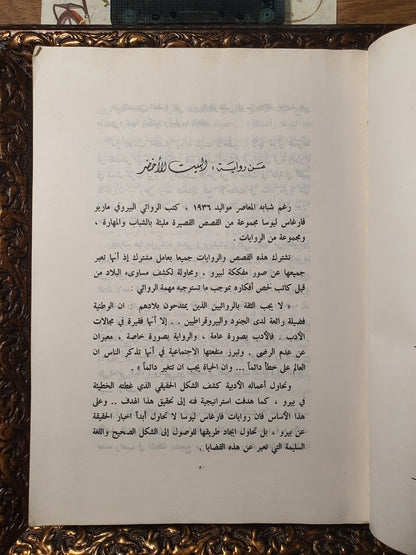 عن رواية : البيت الأخضر
رغم شبابه المعاصر مواليد ١٩٣٦ ، كتب الروائي البيروفي ماريو
فارغاس ليوسا مجموعة من القصص القصيرة مليئة بالشباب والمهارة ،
ومجموعة من الروايات .
تشترك هذه القصص والروايات جميعا بعامل مشترك إذ أنها تعبر
جميعها عن صور مفككة لبيرو ، ومحاولة لكشف مساوىء البلاد من
قبل كاتب لخص أفكاره بموجب ما تستوجبه مهمة الروائي
« لا يجب الثقة بالروائيين الذين يمتدحون بلادهم : ان الوطنية
فضيلة رائعة لدى الجنود والبيروقراطيين . . إلا أنها فقيرة في مجالات
الأدب . فالأدب بصورة عامة ، والرواية بصورة خاصة ، معبران
عن عدم الرضى . وتبرز منفعتها الاجتماعية في أنها تذكر الناس ان
العالم على خطأ دائماً ... وان الحياة يجب ان تتغير دائماً » .
وتحاول أعماله الأدبية كشف الشكل الحقيقي الذي غطته الخطيئة
في بيرو ، كما هدفت استراتيجية فنه إلى تحقيق هذا الهدف .. وعلى
هذا الأساس فان روايات فارغاس ليوسا لا تحاول أبداً اخبار الحقيقة
عن بيرو ، بل تحاول ايجاد طريقها للوصول إلى الشكل الصحيح واللغة
السليمة التي تعبر عن هذه القضايا .